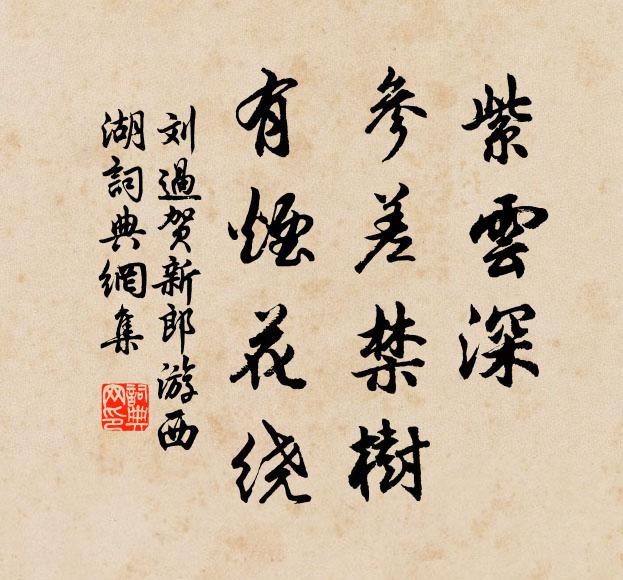 紫雲深
參差禁樹
有煙花绕
刘過贺新郎游西
湖詞典網集
詞典
网印